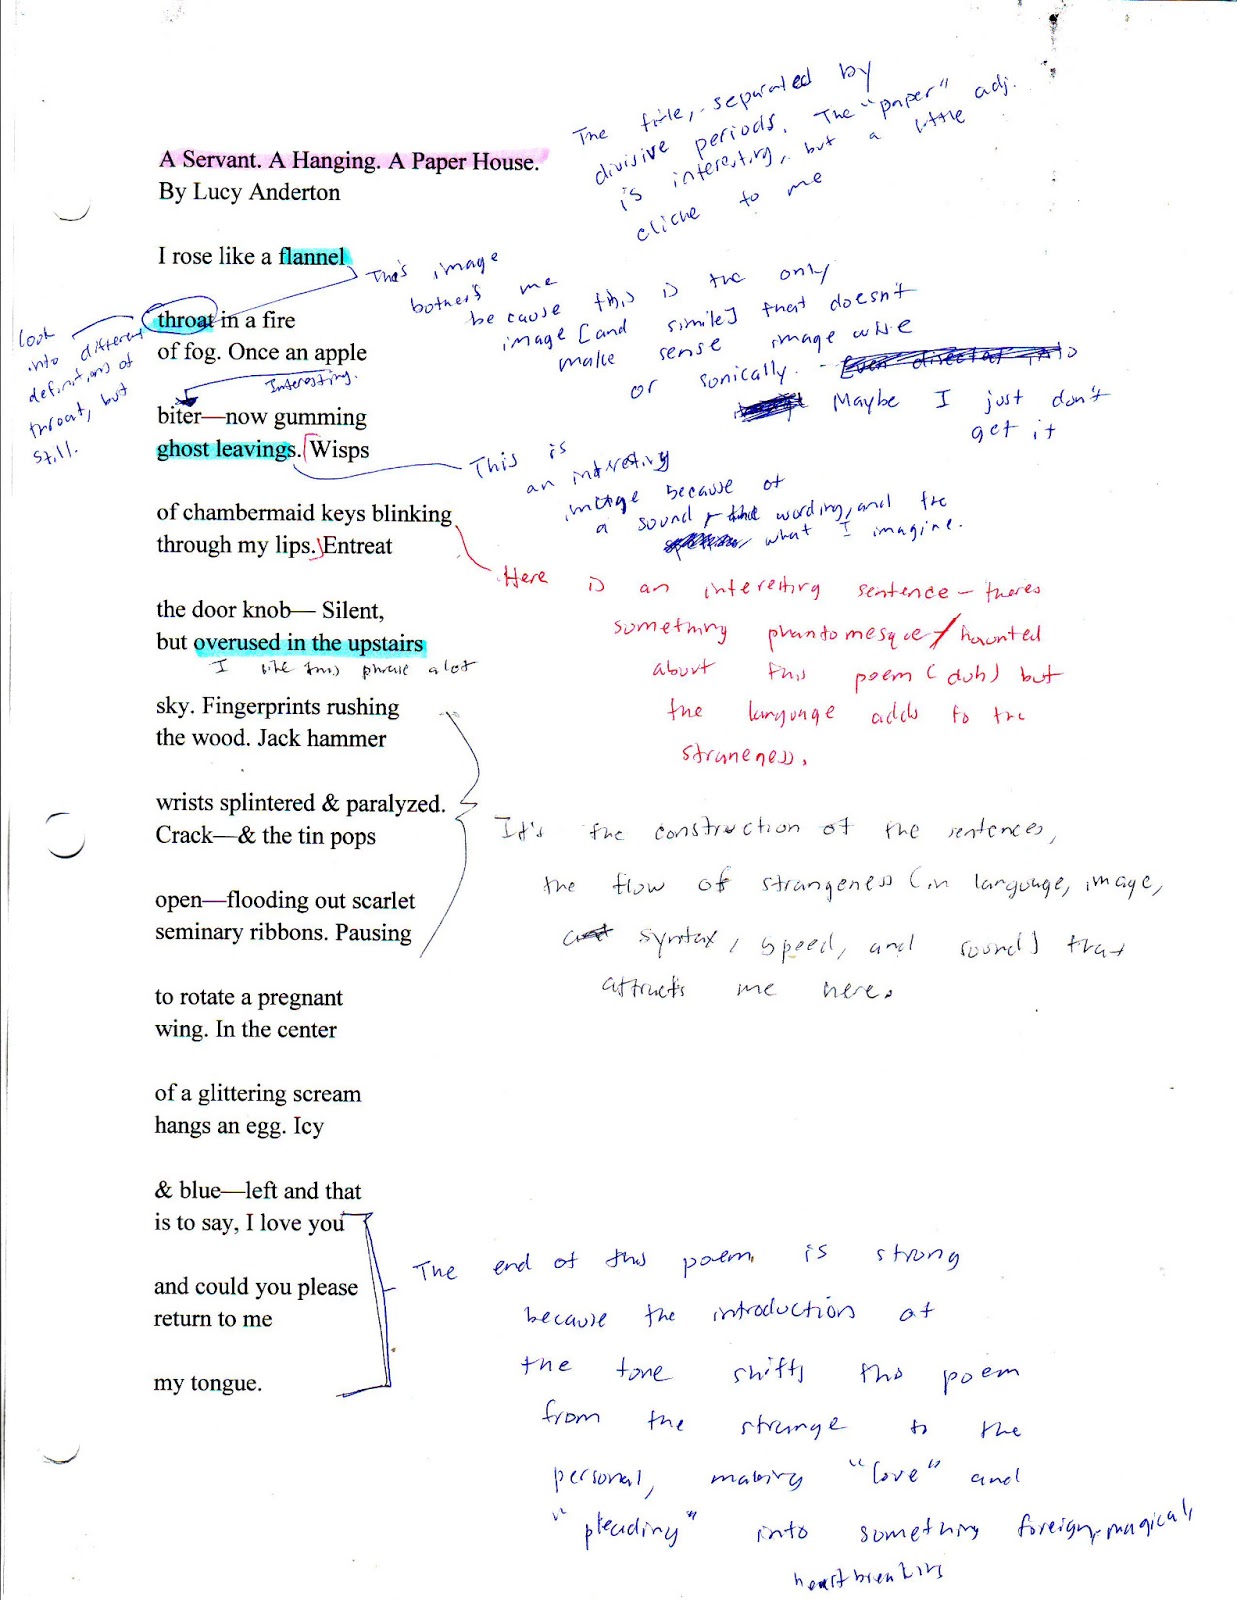 The title, separated by
divisive periods. The "paper" adj.
is interesting, but a little
cliche to me
A Servant. A Hanging. A Paper House.
By Lucy Anderton
I rose like a flannel
This image
bothers me
because this is the only
image [and simile] that doesn't
make sense image wise
or sonically.
Maybe I just don't
get it
throat in a fire
of fog. Once an apple
Look
into different
definitions of
throat, but
still.
Interesting.
biter—now gumming
ghost leavings. Wisps
This is
an interesting
image because of
a sound wording, and the
what I imagine.
of chambermaid keys blinking
through my lips. Entreat
Here is an interesting sentence – theres
something phantomesque/haunted
about this poem (duh) but
the language adds to the
straneness.
the door knob— Silent,
but overused in the upstairs
I like this phrase a lot
sky. Fingerprints rushing
the wood. Jack hammer
wrists splintered & paralyzed.
Crack—& the tin pops
It's the construction of the sentences,
the flow of strangeness (in language, image,
syntax, speed, and sound) that
attracts me here.
open—flooding out scarlet
seminary ribbons. Pausing
to rotate a pregnant
wing. In the center
of a glittering scream
hangs an egg. Icy
& blue—left and that
is to say, I love you
and could you please
return to me
my tongue.
The end of this poem is strong
because the introduction of
the tone shifts the poem
from the strange to the
personal, making "love" and
"pleading" into something foreign, magical,